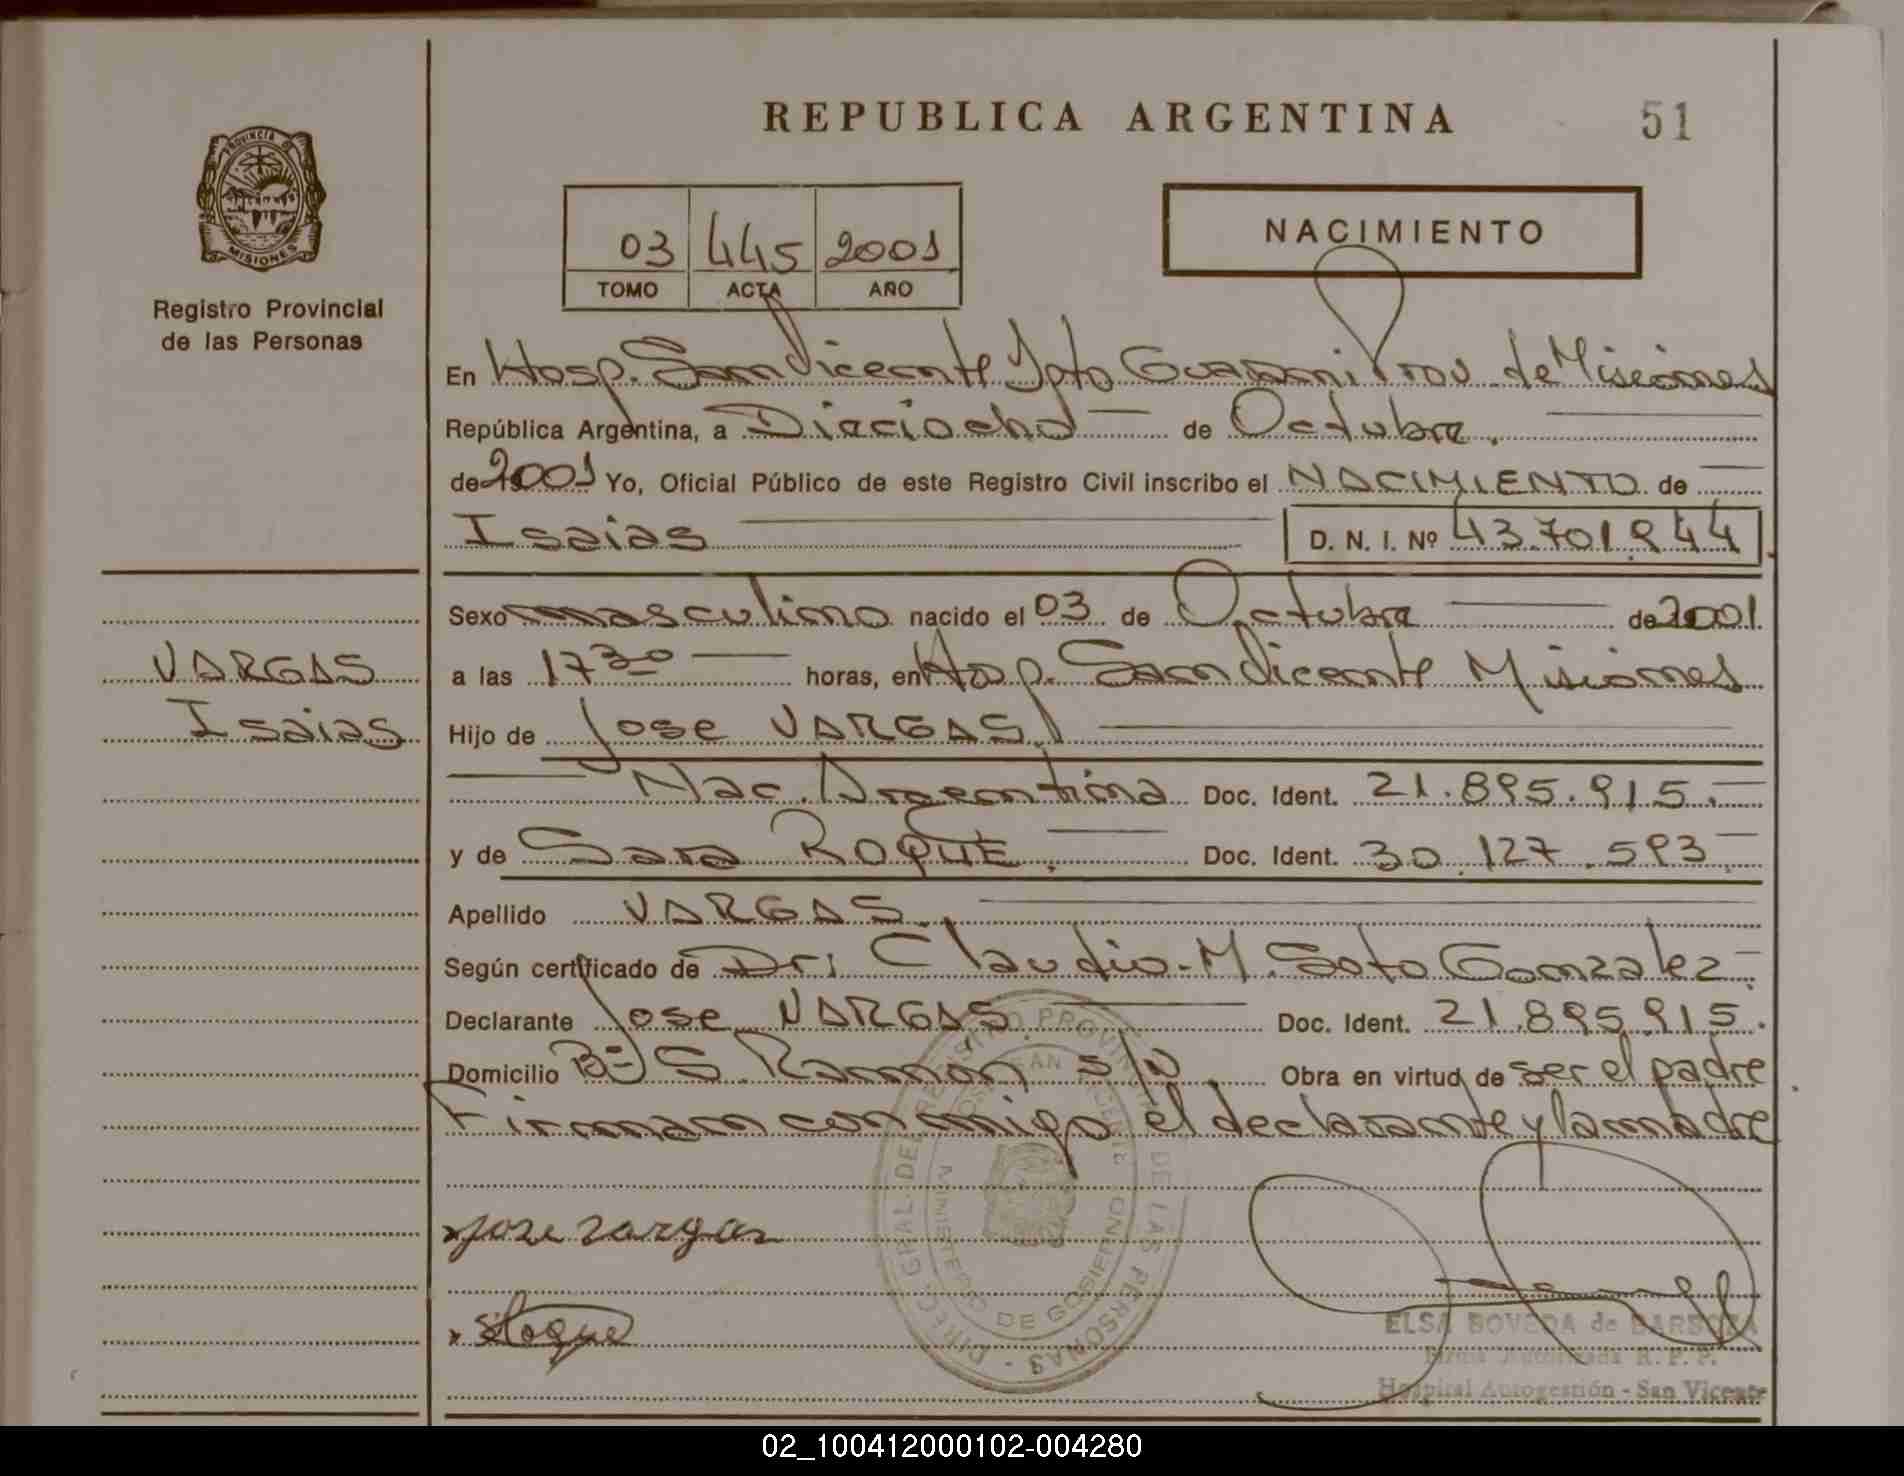 REPUBLICA ARGENTINA
51
PROVINCIA DE
MISIONES
Registro Provincial
de las Personas
03 445 2001
TOMO ACTA AÑO
NACIMIENTO
En Hosp. San Vicente Dpto Guarani Prov. de Misiones
República Argentina, a Dieciocho de Octubre.
de 2001 Yo, Oficial Público de este Registro Civil inscribo el NACIMIENTO de
Isaias D. N. I. Nº 43.701.944
Sexo masculino nacido el 03 de Octubre de 2001.
VARGAS
Isaias
a las 17 30 horas, en Hosp. San Vicente Misiones
Hijo de Jose VARGAS
Nac. Argentina Doc. Ident. 21.895.915.
y de Sara ROQUE. Doc. Ident. 30.127.593
Apellido VARGAS.
Según certificado de Dr: Claudio. M. Soto Gonzalez
Declarante Jose VARGAS Doc. Ident. 21.895.915.
Domicilio Bº S. Ramón s/N Obra en virtud de ser el padre
Firman conmigo el declarante y la madre
DIREC. GRAL. DEL REGISTRO PROVINCIAL DE LAS PERSONAS
MINISTERIO DE GOBIERNO
Jose Vargas
SRoque
ELSA BOVEDA de BARBOZA
Firma Autorizada R. P. P.
Hospital Autogestión - San Vicente
02_100412000102-004280